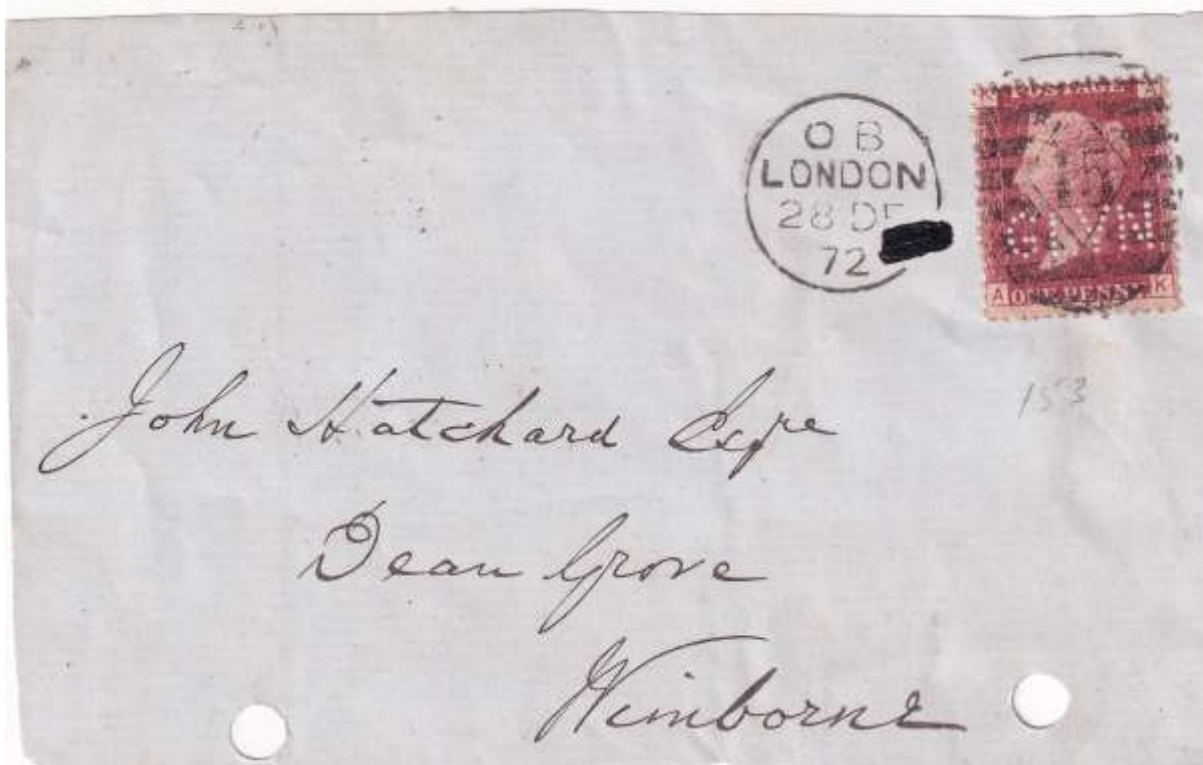 O B
LONDON
28 DE
72
POSTAGE
15
A ONE PENNY K
153
John Hatchard Esqre
Dean Grove
Wimborne